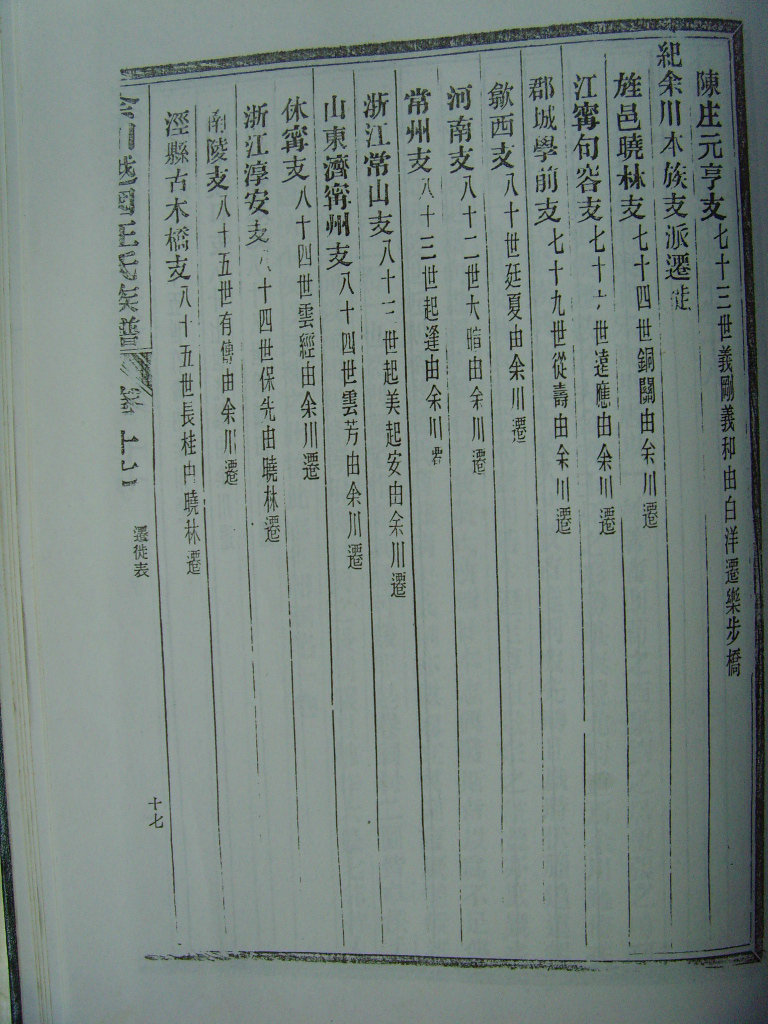 陳庄元亨支七十三世義剛義和由白洋遷樂步橋
紀余川本族支派遷徙
旌邑曉林支七十四世銅關由余川遷
江寗句容支七十六世遠應由余川遷
郡城學前支七十九世從壽由余川遷
歙西支八十世廷夏由余川遷
河南支八十二世大暗由余川遷
常州支八十三世起逢由余川遷
浙江常山支八十三世起美起安由余川遷
山東濟寗州支八十四世雲芳由余川遷
休寗支八十四世雲經由余川遷
浙江淳安支八十四世保先由曉林遷
南陵支八十五世有傳由余川遷
涇縣古木橋支八十五世長桂由曉林遷
余川越國汪氏族譜 卷十七 遷徙表 十七